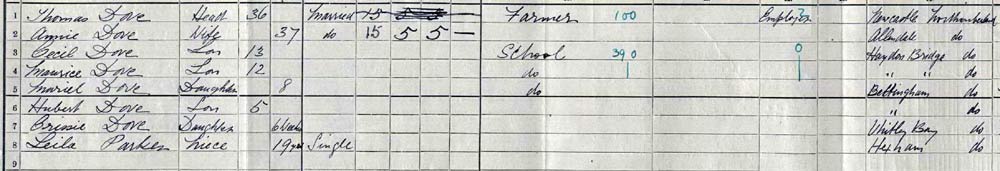 1 Thomas Dove Head 36 Married 15 5 5 — Farmer 100 Employer Newcastle Northumberland
2 Annie Dove Wife 37 do 15 5 5 — Allendale do
3 Cecil Dove Son 13 School 390 0 Haydon Bridge do
4 Maurice Dove Son 12 do " " do
5 Mariel Dove Daughter 8 do Bellingham do
6 Hubert Dove Son 5 " do
7 Crissie Dove Daughter 6 Weeks Whitley Bay do
8 Leila Parker Niece 19 yrs Single Hexham do
9